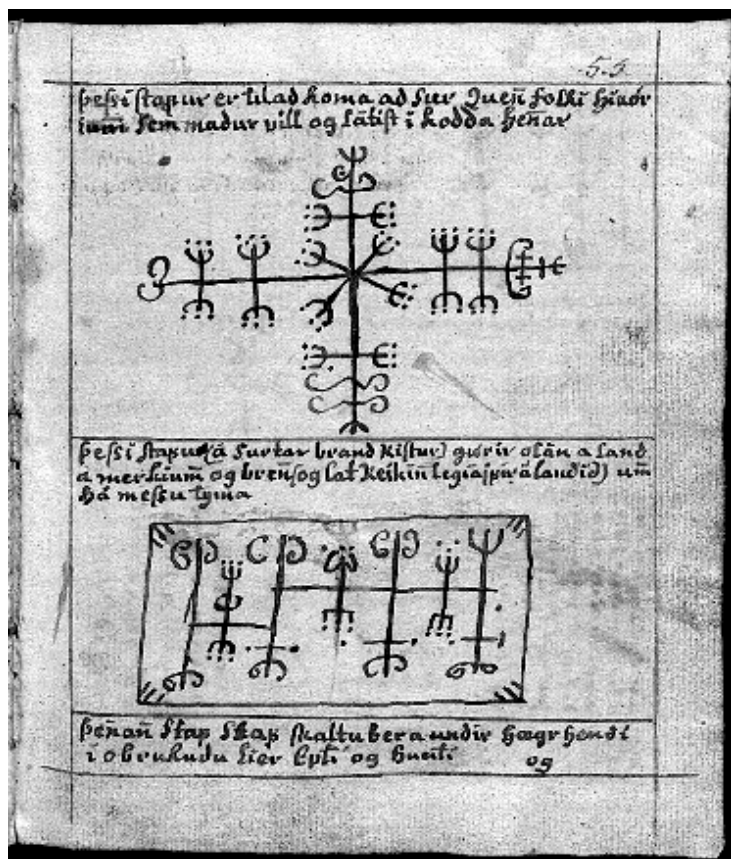 55
þessi stafur er til ad koma ad sier Quenn folki hivör
iumm sem madur vill og látist i kodda hennar
þessi stafur (á surtar brand Ristur) giörir ólán a land
a merkium og brens og lat Reikinn leggia ifir á landid) umm
há messu tyma
þennann staf skaltu bera undir hægr hendi
i obrukudu Lier Epti og hueiti
og